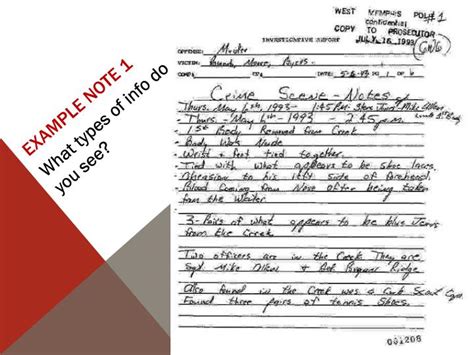 EXAMPLE NOTE 1
What types of info do
you see?
WEST MEMPHIS POL#1
Confidential
COPY TO PROSECUTOR
INVESTIGATIVE REPORT JULY 16, 1993
OFFENSE: Murder
VICTIM: Moore, Byers
DATE 5-6-93
Crime Scene - Notes
Thurs. May 6th, 1993 - 1:45 P.M. Steve Jones, Mike Allen
- Thurs. - May 6th - 1993 - 2:45 p.m.
- 1st Body Removed from Creek
- Body Was Nude
- Wrist & feet tied together.
- Tied with what appears to be shoe laces.
- Abrasion to his left side of forehead.
- Blood Coming from Nose after being taken
from the Water
3-Pairs of what appears to be blue Jeans
from the Creek
Two officers are in the Creek They are
Sgt Mike Allen & Ridge
Also found in the Creek was a Cub Scout Cap
Found three pairs of tennis Shoes.
001208